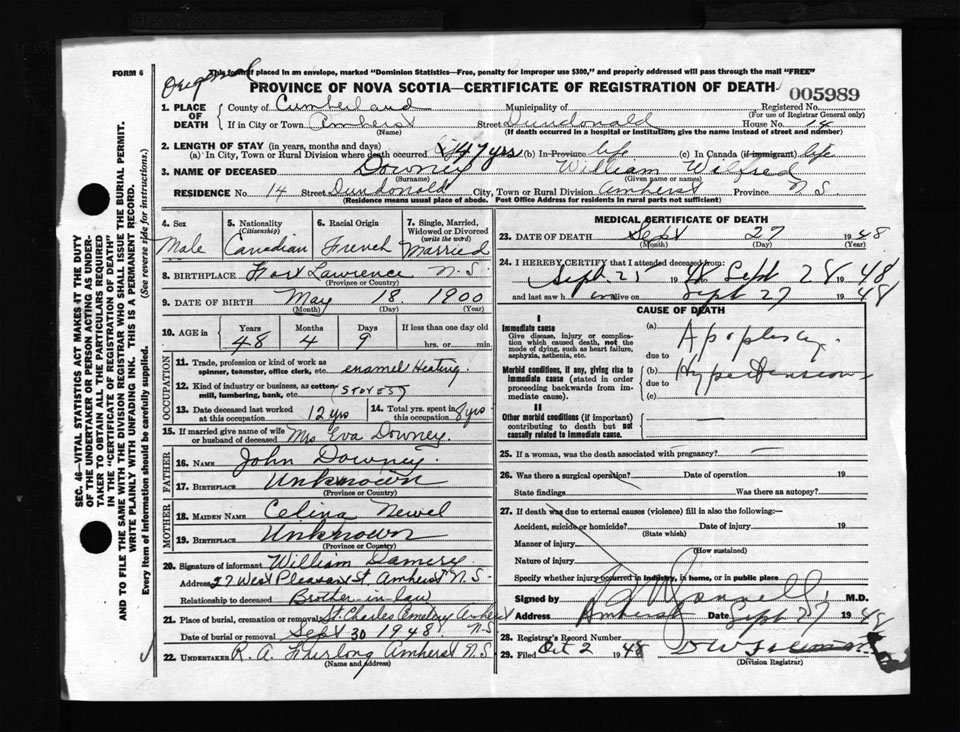 FORM 6
Original
This form if placed in an envelope, marked "Dominion Statistics—Free, penalty for improper use $300," and properly addressed will pass through the mail "FREE"
PROVINCE OF NOVA SCOTIA—CERTIFICATE OF REGISTRATION OF DEATH
005989
1. PLACE OF DEATH
County of Cumberland Municipality of Registered No.
(For use of Registrar General only)
If in City or Town Amherst Street Dundonald House No. 14
(Name) (If death occurred in a hospital or institution, give the name instead of street and number)
2. LENGTH OF STAY (in years, months and days)
(a) In City, Town or Rural Division where death occurred 47 yrs (b) In Province life (c) In Canada (if immigrant) life
3. NAME OF DECEASED Downey William Wilfred
(Surname) (Given name or names)
RESIDENCE No. 14 Street Dundonald City, Town or Rural Division Amherst Province N S
(Residence means usual place of abode. Post Office Address for residents in rural parts not sufficient)
4. Sex Male
5. Nationality (Citizenship) Canadian
6. Racial Origin French
7. Single, Married, Widowed or Divorced (write the word) Married
8. BIRTHPLACE Fort Lawrence N.S.
(Province or Country)
9. DATE OF BIRTH May 18 1900
(Month) (Day) (Year)
10. AGE in Years 48 Months 4 Days 9 If less than one day old hrs. or min.
OCCUPATION
11. Trade, profession or kind of work as spinner, teamster, office clerk, etc. enamel Heating
12. Kind of industry or business, as cotton-mill, lumbering, bank, etc. (STOVES)
13. Date deceased last worked at this occupation 12 yrs
14. Total yrs. spent in this occupation 8 yrs
15. If married give name of wife or husband of deceased Mrs Eva Downey.
FATHER
16. NAME John Downey.
17. BIRTHPLACE Unknown
(Province or Country)
MOTHER
18. MAIDEN NAME Celina Newel
19. BIRTHPLACE Unknown
(Province or Country)
20. Signature of informant William
Address 27 West Pleasant St. Amherst N.S.
Relationship to deceased Brother-in-law
21. Place of burial, cremation or removal St. Charles Cemetery Amherst N.S
Date of burial or removal Sept 30 1948
22. UNDERTAKER R. A. Furlong Amherst N.S.
(Name and address)
MEDICAL CERTIFICATE OF DEATH
23. DATE OF DEATH Sept 27 1948
(Month) (Day) (Year)
24. I HEREBY CERTIFY that I attended deceased from:
Sept. 25 1948 to Sept 28 1948
and last saw him alive on Sept 27 1948
CAUSE OF DEATH
I
Immediate cause
Give disease, injury or complication which caused death, not the mode of dying, such as heart failure, asphyxia, asthenia, etc.
(a) Apoplexy.
due to
Morbid conditions, if any, giving rise to immediate cause (stated in order proceeding backwards from immediate cause).
(b) Hypertension
due to
(c)
II
Other morbid conditions (if important) contributing to death but not causally related to immediate cause.
25. If a woman, was the death associated with pregnancy?
26. Was there a surgical operation? Date of operation 19
State findings Was there an autopsy?
27. If death was due to external causes (violence) fill in also the following:—
Accident, suicide or homicide? Date of injury 19
(State which)
Manner of injury
(How sustained)
Nature of injury
Specify whether injury occurred in industry, in home, or in public place
Signed by M.D.
Address Amherst Date Sept 27 1948
28. Registrar's Record Number
29. Filed Oct 2 1948
(Division Registrar)
SEC. 46—VITAL STATISTICS ACT MAKES IT THE DUTY
OF THE UNDERTAKER OR PERSON ACTING AS UNDER-
TAKER TO OBTAIN ALL THE PARTICULARS REQUIRED
IN THE "CERTIFICATE OF REGISTRATION OF DEATH"
AND TO FILE THE SAME WITH THE DIVISION REGISTRAR WHO SHALL ISSUE THE BURIAL PERMIT.
WRITE PLAINLY WITH UNFADING INK. THIS IS A PERMANENT RECORD.
Every item of information should be carefully supplied. (See reverse side for instructions.)